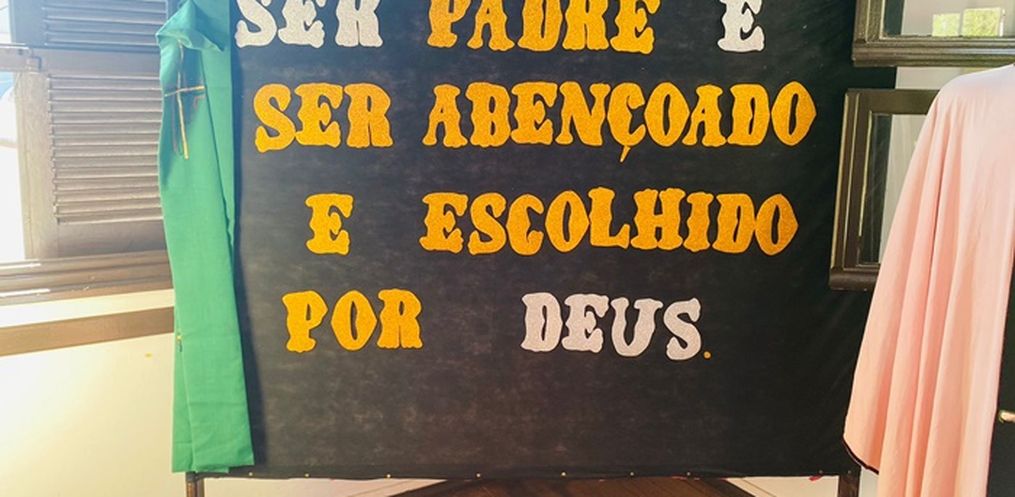 SER PADRE E
SER ABENÇOADO
E ESCOLHIDO
POR DEUS.